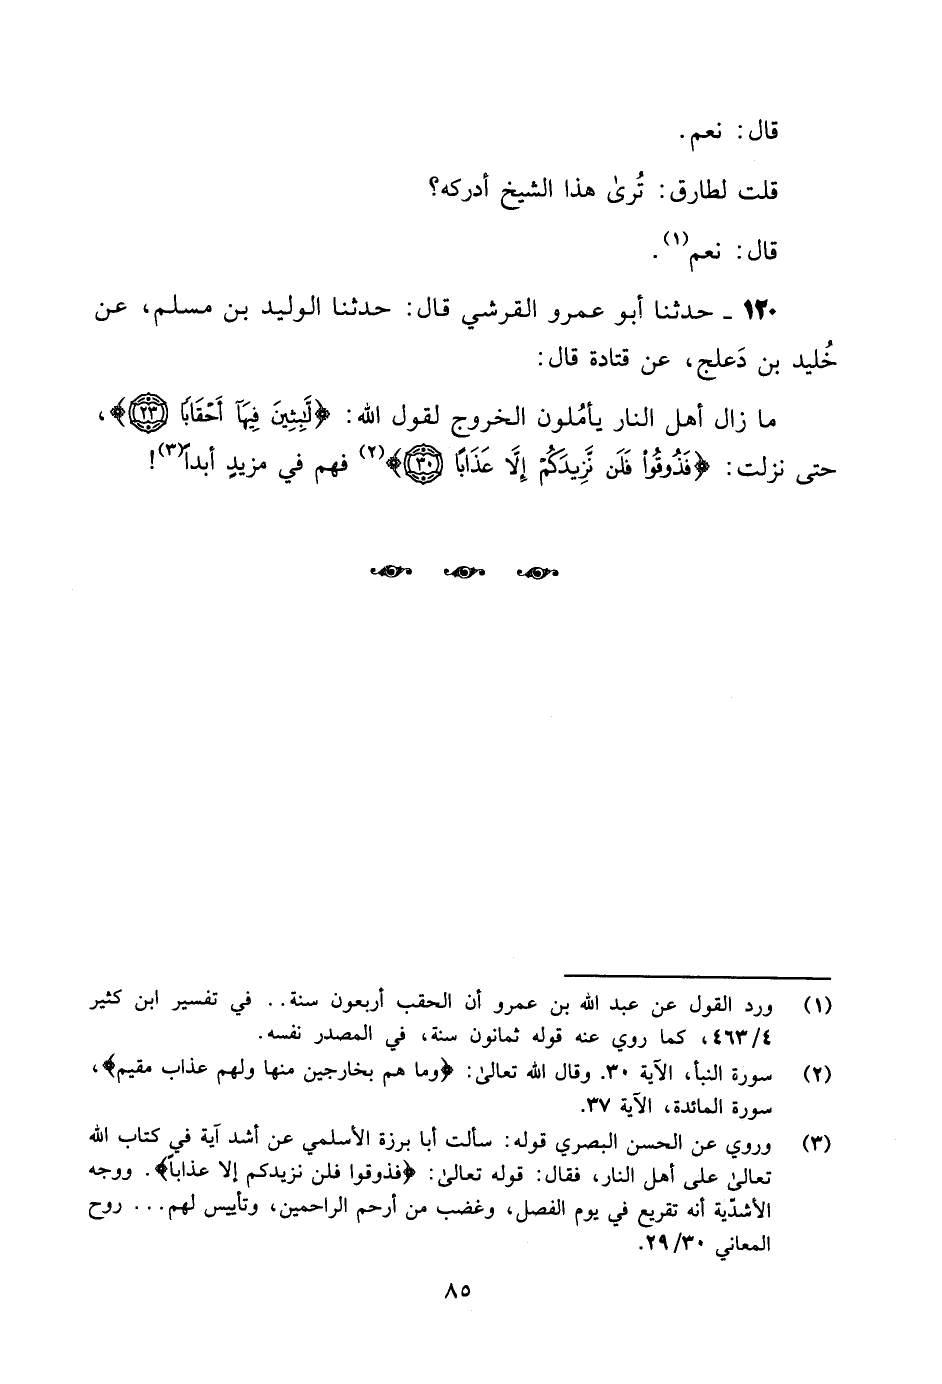 قال: نعم.
قلت لطارق: تُرىٰ هذا الشيخ أدركه؟
قال: نعم(١).
١٢٠ ـ حدثنا أبو عمرو القرشي قال: حدثنا الوليد بن مسلم، عن
خُليد بن دَعلج، عن قتادة قال:
ما زال أهل النار يأمُلون الخروج لقول الله: ﴿لَّٰبِثِينَ فِيهَآ أَحْقَابًا ٢٣﴾،
حتى نزلت: ﴿فَذُوقُوا۟ فَلَن نَّزِيدَكُمْ إِلَّا عَذَابًا ٣٠﴾(٢) فهم في مزيدٍ أبداً(٣)!
(١) ورد القول عن عبد الله بن عمرو أن الحقب أربعون سنة.. في تفسير ابن كثير
٤/٤٦٣، كما روي عنه قوله ثمانون سنة، في المصدر نفسه.
(٢) سورة النبأ، الآية ٣٠. وقال الله تعالىٰ: ﴿وما هم بخارجين منها ولهم عذاب مقيم﴾،
سورة المائدة، الآية ٣٧.
(٣) وروي عن الحسن البصري قوله: سألت أبا برزة الأسلمي عن أشد آية في كتاب الله
تعالىٰ على أهل النار، فقال: قوله تعالىٰ: ﴿فذوقوا فلن نزيدكم إلا عذاباً﴾. ووجه
الأشدّية أنه تقريع في يوم الفصل، وغضب من أرحم الراحمين، وتأييس لهم... روح
المعاني ٢٩/٣٠.
٨٥